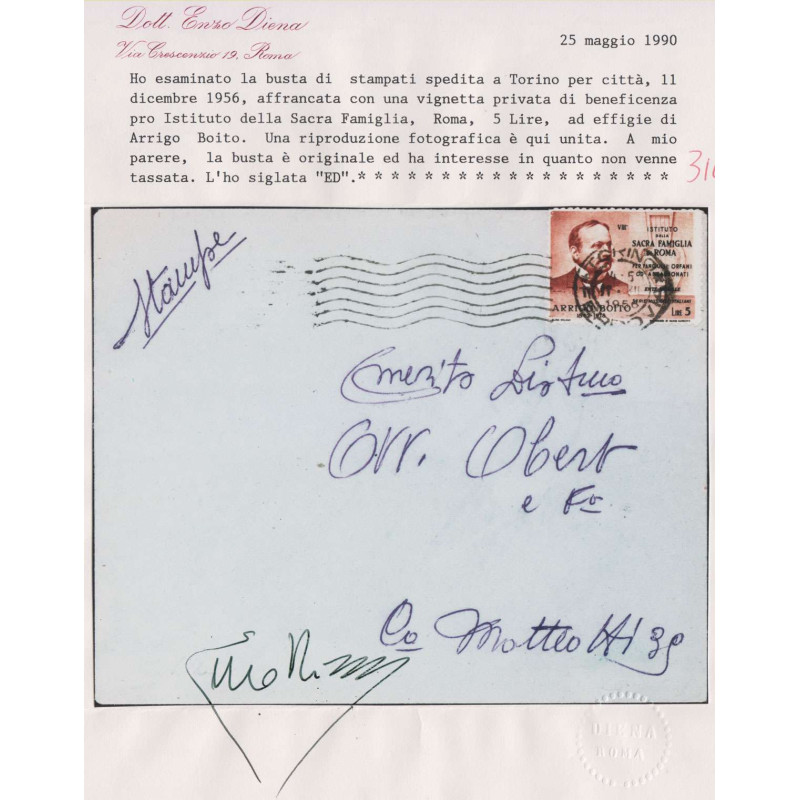 Dott. Enzo Diena
Via Crescenzio 19, Roma
25 maggio 1990
Ho esaminato la busta di stampati spedita a Torino per città, 11
dicembre 1956, affrancata con una vignetta privata di beneficenza
pro Istituto della Sacra Famiglia, Roma, 5 Lire, ad effigie di
Arrigo Boito. Una riproduzione fotografica è qui unita. A mio
parere, la busta è originale ed ha interesse in quanto non venne
tassata. L'ho siglata "ED".* * * * * * * * * * * * * * * * * * *
Stampe
VIIIª
ISTITUTO
DELLA
SACRA FAMIGLIA
in ROMA
ARRIGO BOITO
LIRE 5
Avv. Obert
e
Co Matteotti 39
DIENA
ROMA